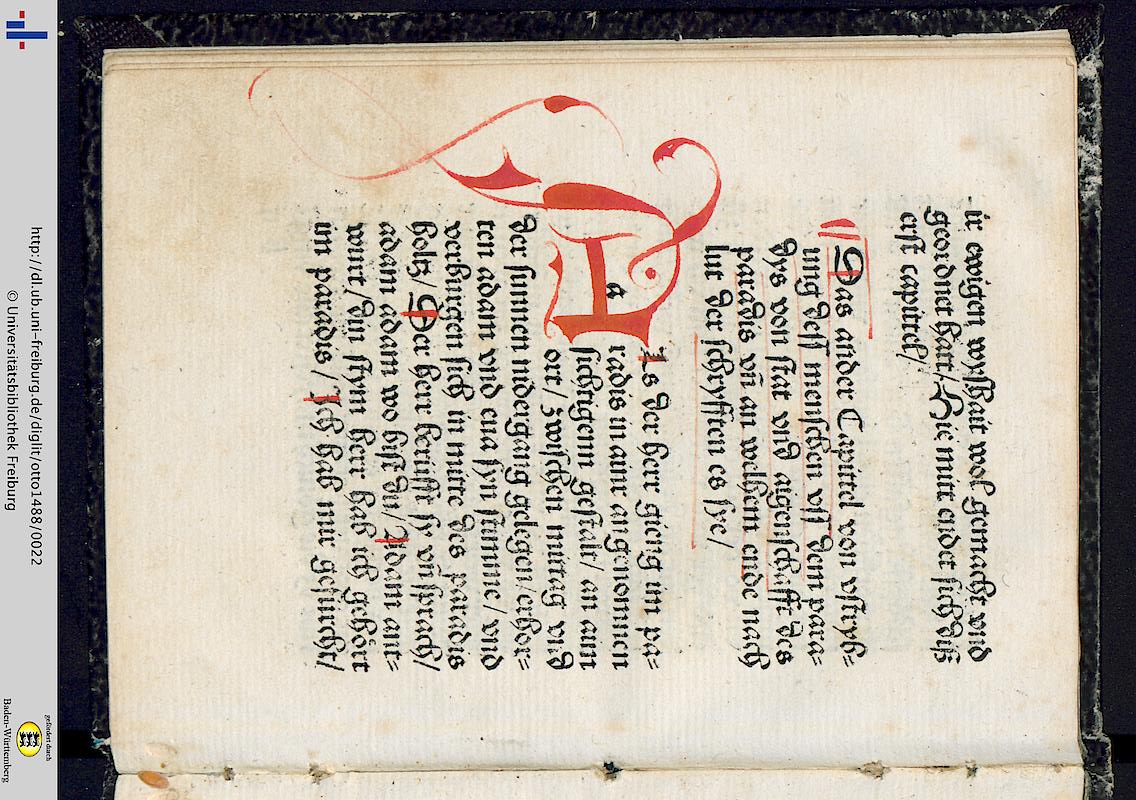 ir ewigen wyßhait wol gemacht vnd
geordnet hatt/ Hie mitt endet sich diß
erst capittel/
Das ander Capittel von vstryb=
ung dess menschen vss dem para=
dys von stat vnd aigenschafft des
paradis vñ an welhem ende nach
lut der schryfften es sye/
Als der herr gieng im pa=
radis in ainr angenomnen
sichtigenn gestalt/ an aim
ort/ zwischen mittag vnd
der sunnen nidergang gelegen/ erhor=
ten adam vnd eua syn stimme/ vnd
verburgen sich in mitte des paradis
holtz/ Der herr berüfft sy vñ sprach/
adam adam wo bist du/ Adam ant=
wurt/ din stym herr hab ich gehört
im paradis/ Ich hab mir gefürcht/
http://dl.ub.uni-freiburg.de/diglit/otto1488/0022
© Universitätsbibliothek Freiburg
gefördert durch
Baden-Württemberg